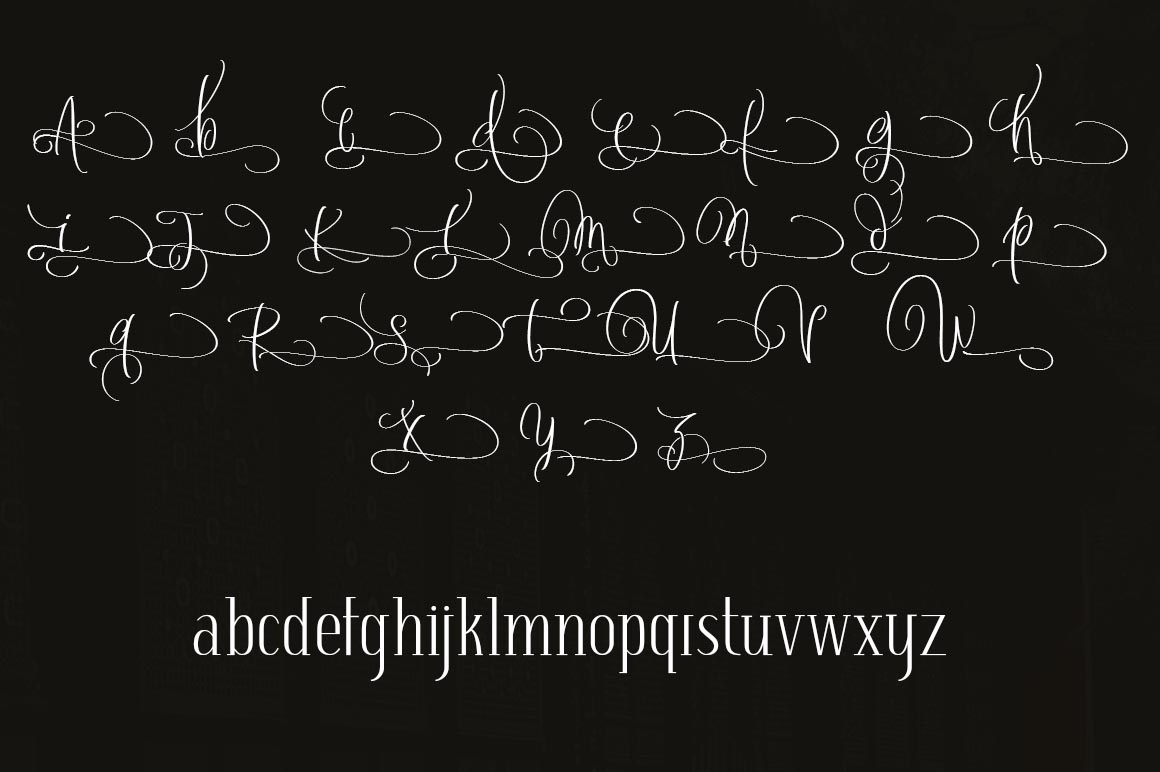 A b c d e f g h
i J K L m n o p
q R s t U V W
X y z
abcdefghijklmnopqrstuvwxyz